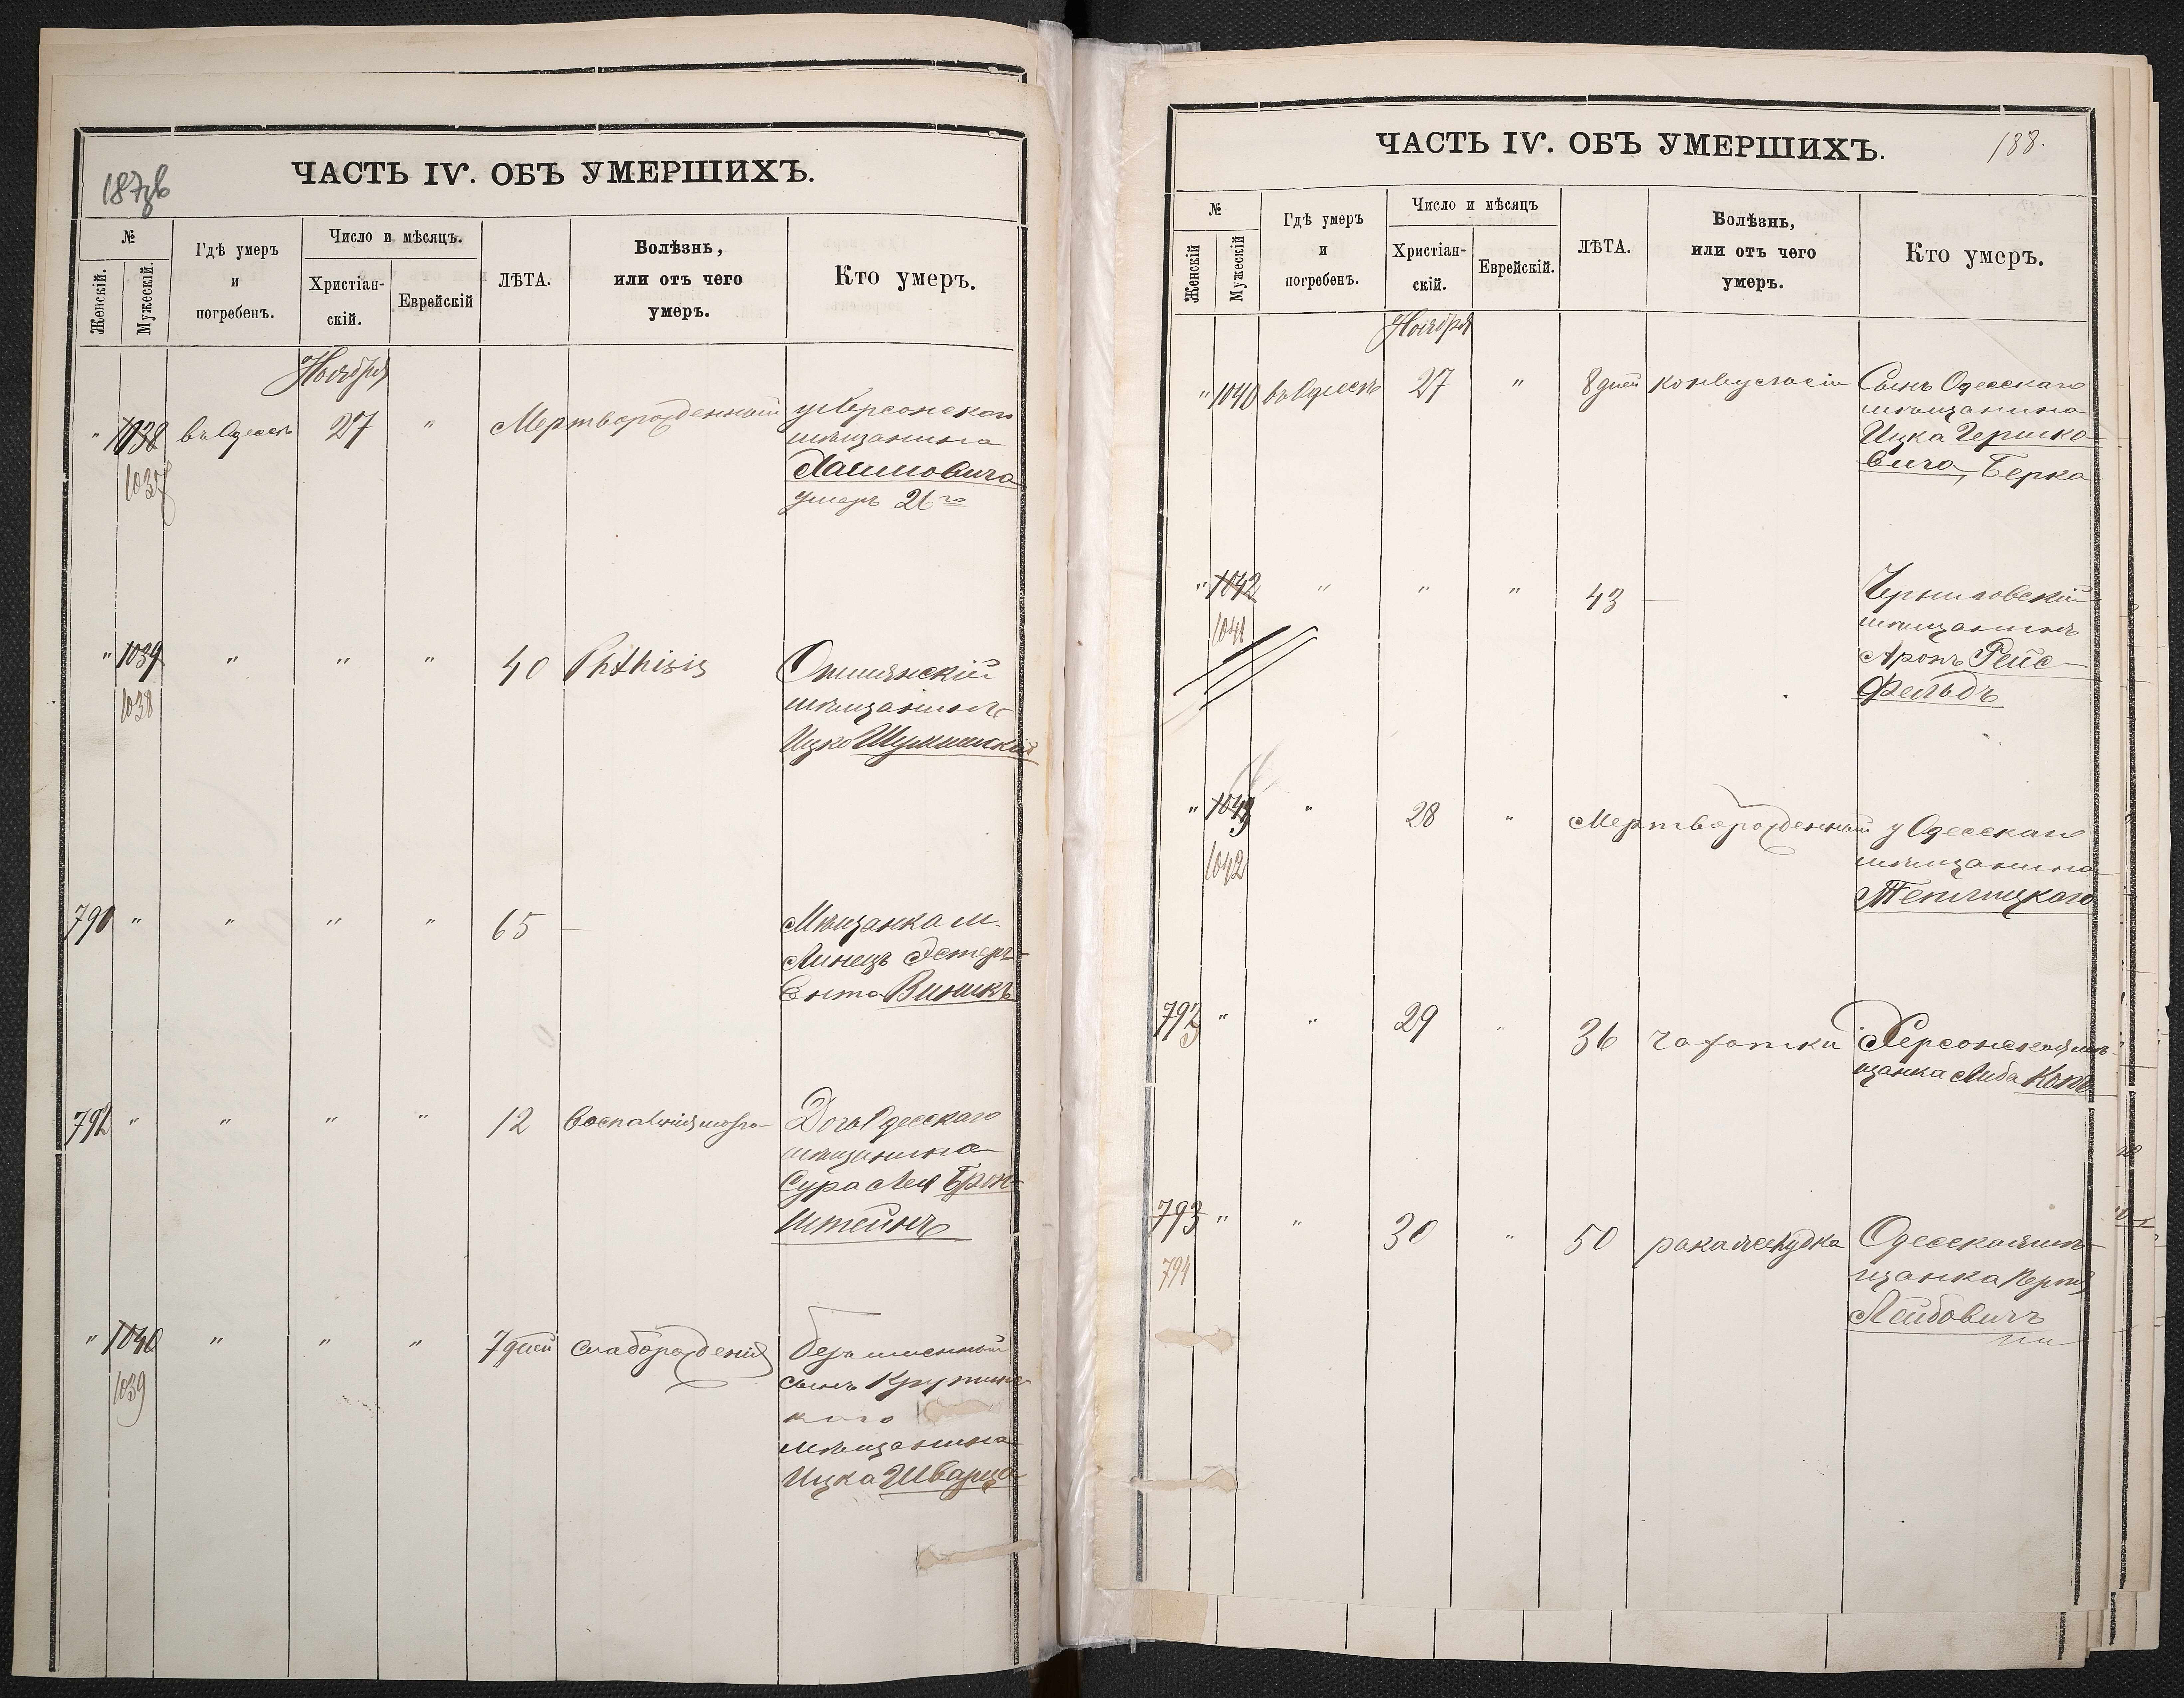 187зв
ЧАСТЬ IV. ОБЪ УМЕРШИХЪ.
№
Женскій.
Мужескій.
Гдѣ умеръ
и
погребенъ.
Число и мѣсяцъ.
Христіан-
скій.
Еврейскій
ЛѢТА.
Болѣзнь,
или отъ чего
умеръ.
Кто умеръ.
Ноября
" 1038 въ Одессѣ 27 " Мертворожденный у Херсонскаго
1037
мѣщанина
Хаимовича
умеръ 26го
" 1039 " " " 40 Phthisis Ошмянскій
1038
мѣщанинъ
Ицко Шуминскій
790 " " " " 65 — Мѣщанка м.
Линецъ Эстеръ
Ента Виникъ
791 " " " " 12 воспаленія мозга Дочь Одесскаго
мѣщанина
Сура Лея Брон-
штейнъ
" 1040 " " " 7 дней слаборожденія безъименный
1039
сынъ
каго
мѣщанина
Ицка Шварца
188.
ЧАСТЬ IV. ОБЪ УМЕРШИХЪ.
№
Женскій
Мужескій
Гдѣ умеръ
и
погребенъ.
Число и мѣсяцъ
Христіан-
скій.
Еврейскій.
ЛѢТА.
Болѣзнь,
или отъ чего
умеръ.
Кто умеръ.
Ноября
" 1040 въ Одессѣ 27 " 8 дней конвульсіи Сынъ Одесскаго
мѣщанина
Ицка Гершко-
вича, Берко
" 1042 " " " 43 — Черниговскій
1041
мѣщанинъ
Аронъ Рейс-
фельдъ
" 1043 " 28 " Мертворожденный у Одесскаго
1042
мѣщанина
Теплицкаго
792 " " 29 " 36 чахотки Херсонская мѣ-
щанка Либа Копъ
793 " " 30 " 50 рака желудка Одесская мѣ-
794
щанка Перля
Лейбовичъ